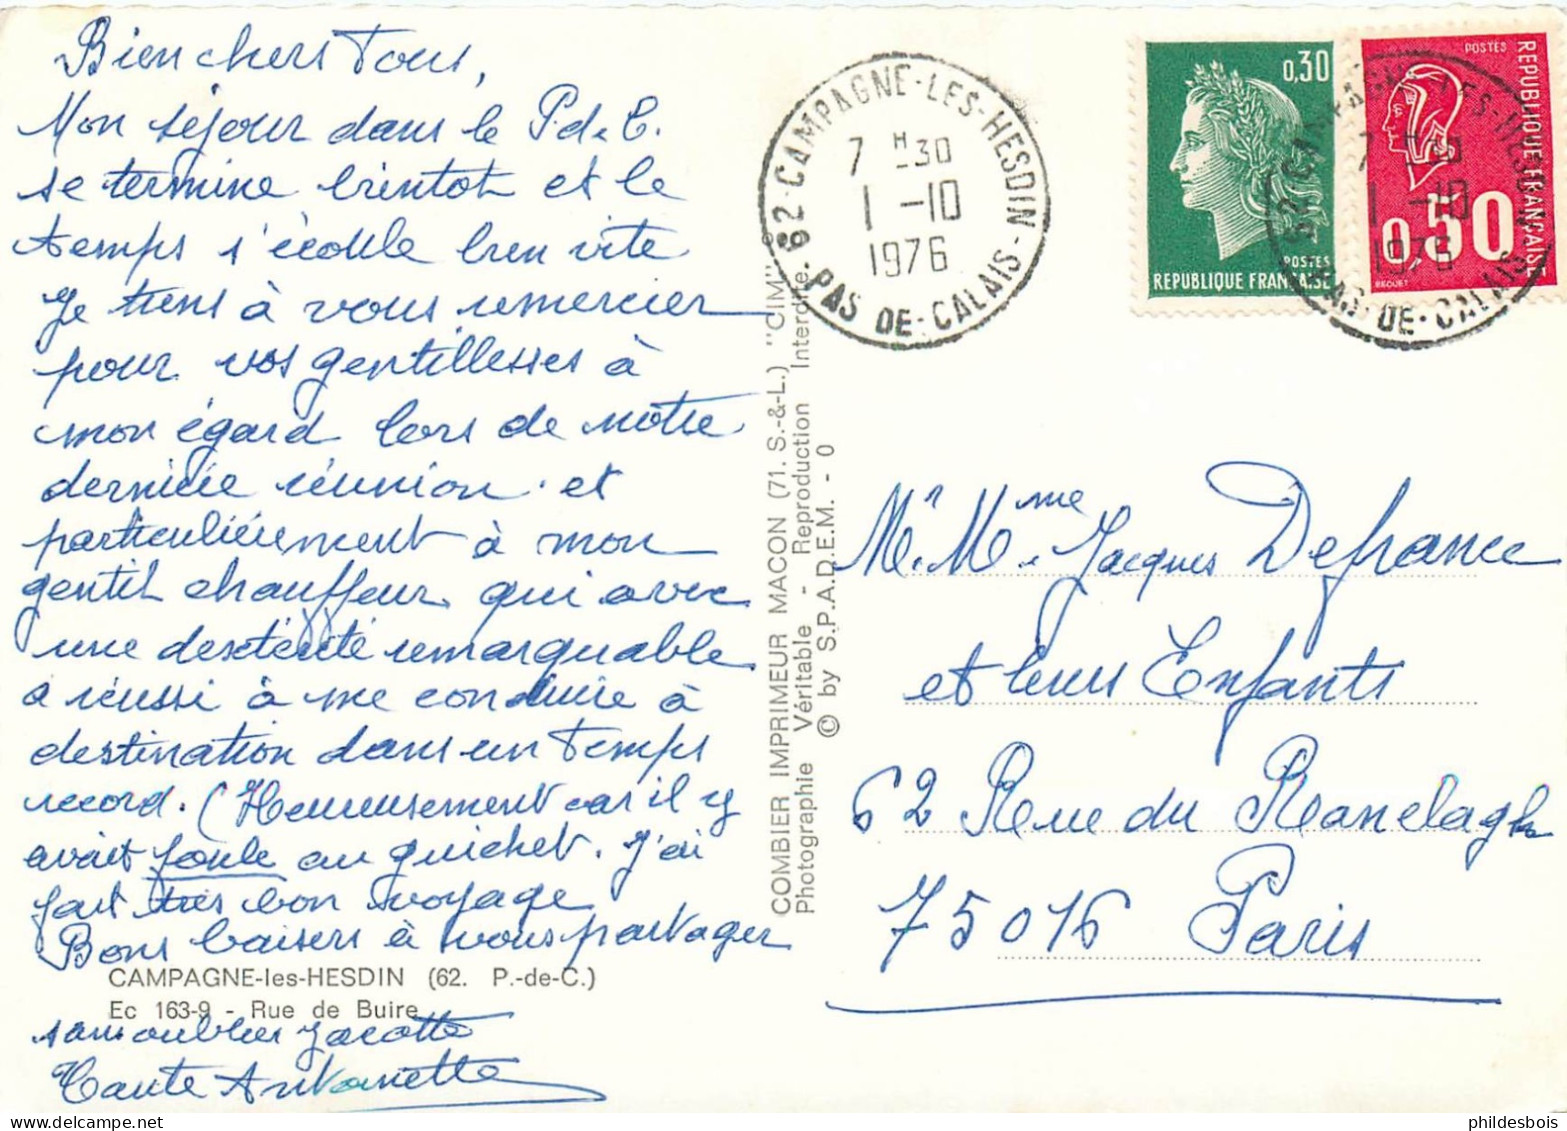 Bien chers Tous,
Mon séjour dans le P. de C.
se termine bientôt et le
temps s'écoule bien vite
Je tiens à vous remercier
pour vos gentillesses à
mon égard lors de notre
dernière réunion et
particulièrement à mon
gentil chauffeur qui avec
une dextérité remarquable
a réussi à me conduire à
destination dans un temps
record. (Heureusement car il y
avait foule au guichet. J'ai
fait très bon voyage
Bons baisers à vous partager
CAMPAGNE-les-HESDIN (62. P.-de-C.)
Ec 163-9 - Rue de Buire
sans oublier Jacotte
Tante Antoinette
COMBIER IMPRIMEUR MACON (71. S.-&-L.) "CIM"
Photographie Véritable - Reproduction Interdite.
© by S.P.A.D.E.M. - 0
62 CAMPAGNE-LES-HESDIN
7 H-30
1-10
1976
PAS DE-CALAIS
0,30
POSTES
REPUBLIQUE FRANÇAISE
POSTES
REPUBLIQUE FRANÇAISE
0,50
BEQUET
62 CAMPAGNE-LES-HESDIN
7 H-30
1-10
1976
PAS-DE-CALAIS
Mr. Mme. Jacques Defrance
et leurs Enfants
62 Rue du Ranelagh
75016 Paris
phildesbois